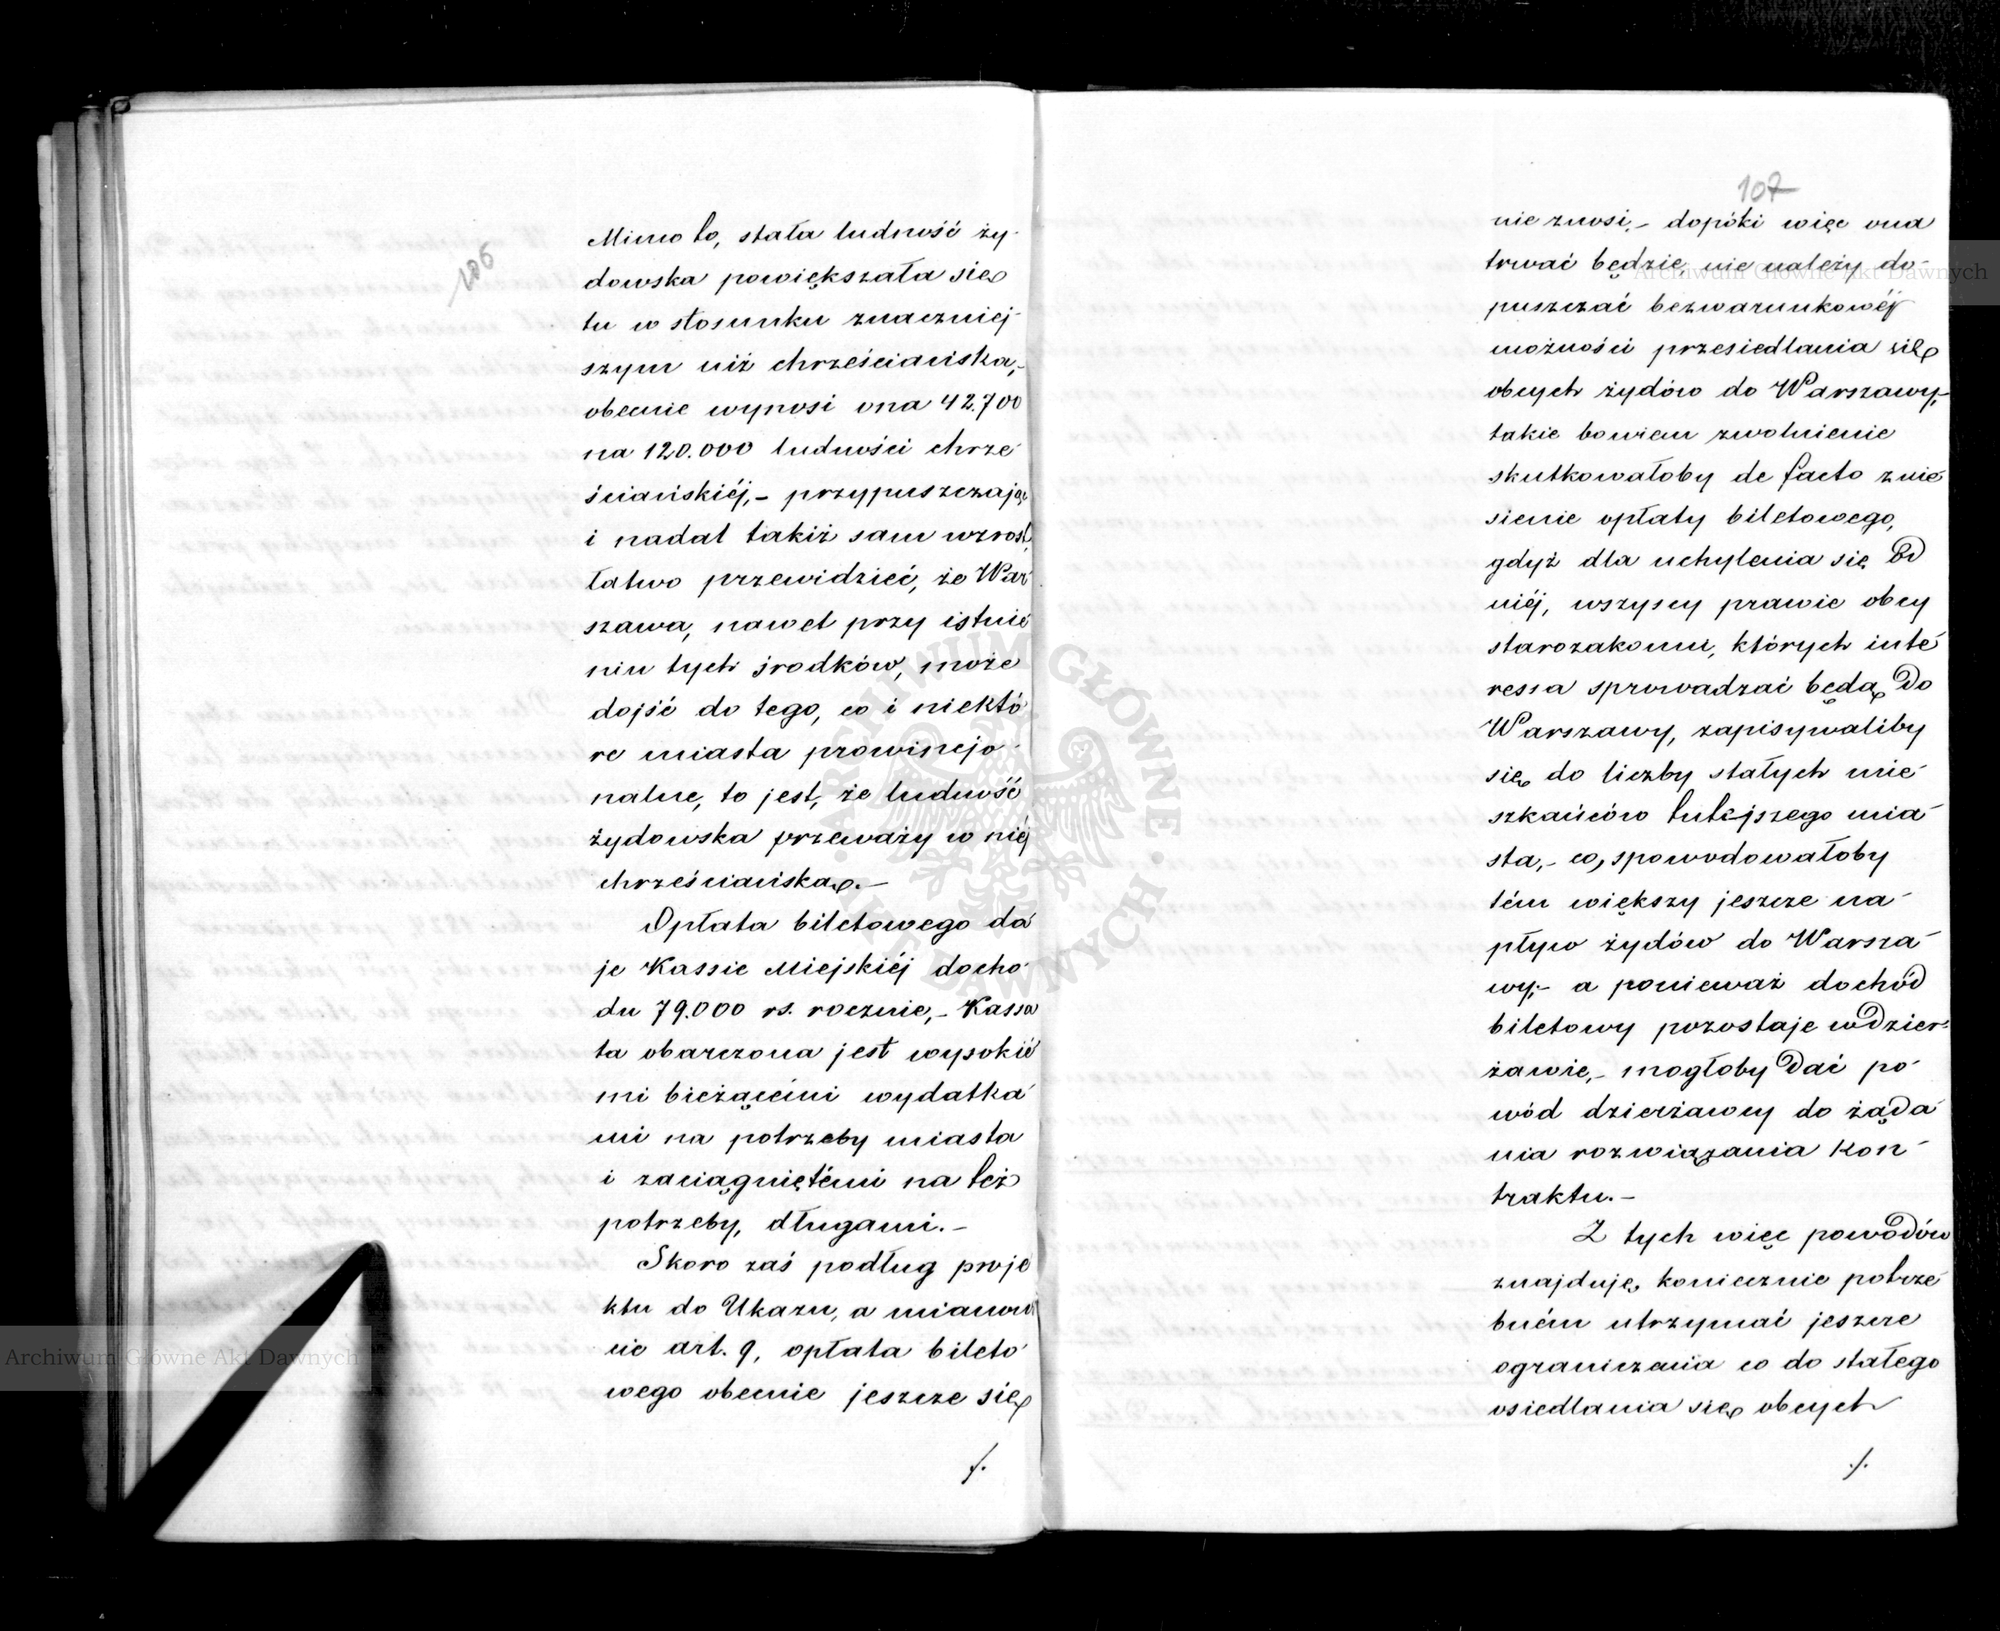 106
Mimo to, stała ludność ży-
dowska powiększała się
tu w stosunku znaczniej-
szym niż chrześciańska,-
obecnie wynosi ona 42.700
na 120.000 ludności chrze-
ściańskiéj,- przypuszczając
i nadal takiż sam wzrost,
łatwo przewidzieć, że War-
szawa, nawet przy istnie-
niu tych środków, może
dojść do tego, co i niektó-
re miasta prowincjo-
nalne, to jest, że ludność
żydowska przeważy w niéj
chrześciańską.-
Opłata biletowego da-
je Kassie Miejskiéj docho-
du 79.000 rs. rocznie,- Kassa
ta obarczona jest wysokie-
mi bieżącémi wydatka-
mi na potrzeby miasta
i zaciągniętémi na też
potrzeby, długami.-
Skoro zaś podług proje-
ktu do Ukazu, a mianowi-
cie art. 9, opłata bileto-
wego obecnie jeszcze się
./.
107
nie znosi,- dopóki więc ona
trwać będzie, nie należy do-
puszczać bezwarunkowéj
możności przesiedlania się
obcych żydów do Warszawy,-
takie bowiem zwolnienie
skutkowałoby de facto znie-
sienie opłaty biletowego,
gdyż dla uchylenia się od
niéj, wszyscy prawie obcy
starozakonni, których inte-
ressa sprowadzać będą do
Warszawy, zapisywaliby
się do liczby stałych mie-
szkańców tutejszego mia-
sta,- co, spowodowałoby
tém większy jeszcze na-
pływ żydów do Warsza-
wy;- a ponieważ dochód
biletowy pozostaje w dzier-
żawie,- mogłoby dać po-
wód dzierżawcy do żąda-
nia rozwiązania kon-
traktu.-
Z tych więc powodów
znajduję koniecznie potrze-
bném utrzymać jeszcze
ograniczenia co do stałego
osiedlania się obcych
./.
Archiwum Główne Akt Dawnych
Archiwum Główne Akt Dawnych
ARCHIWUM GŁÓWNE
AKT DAWNYCH